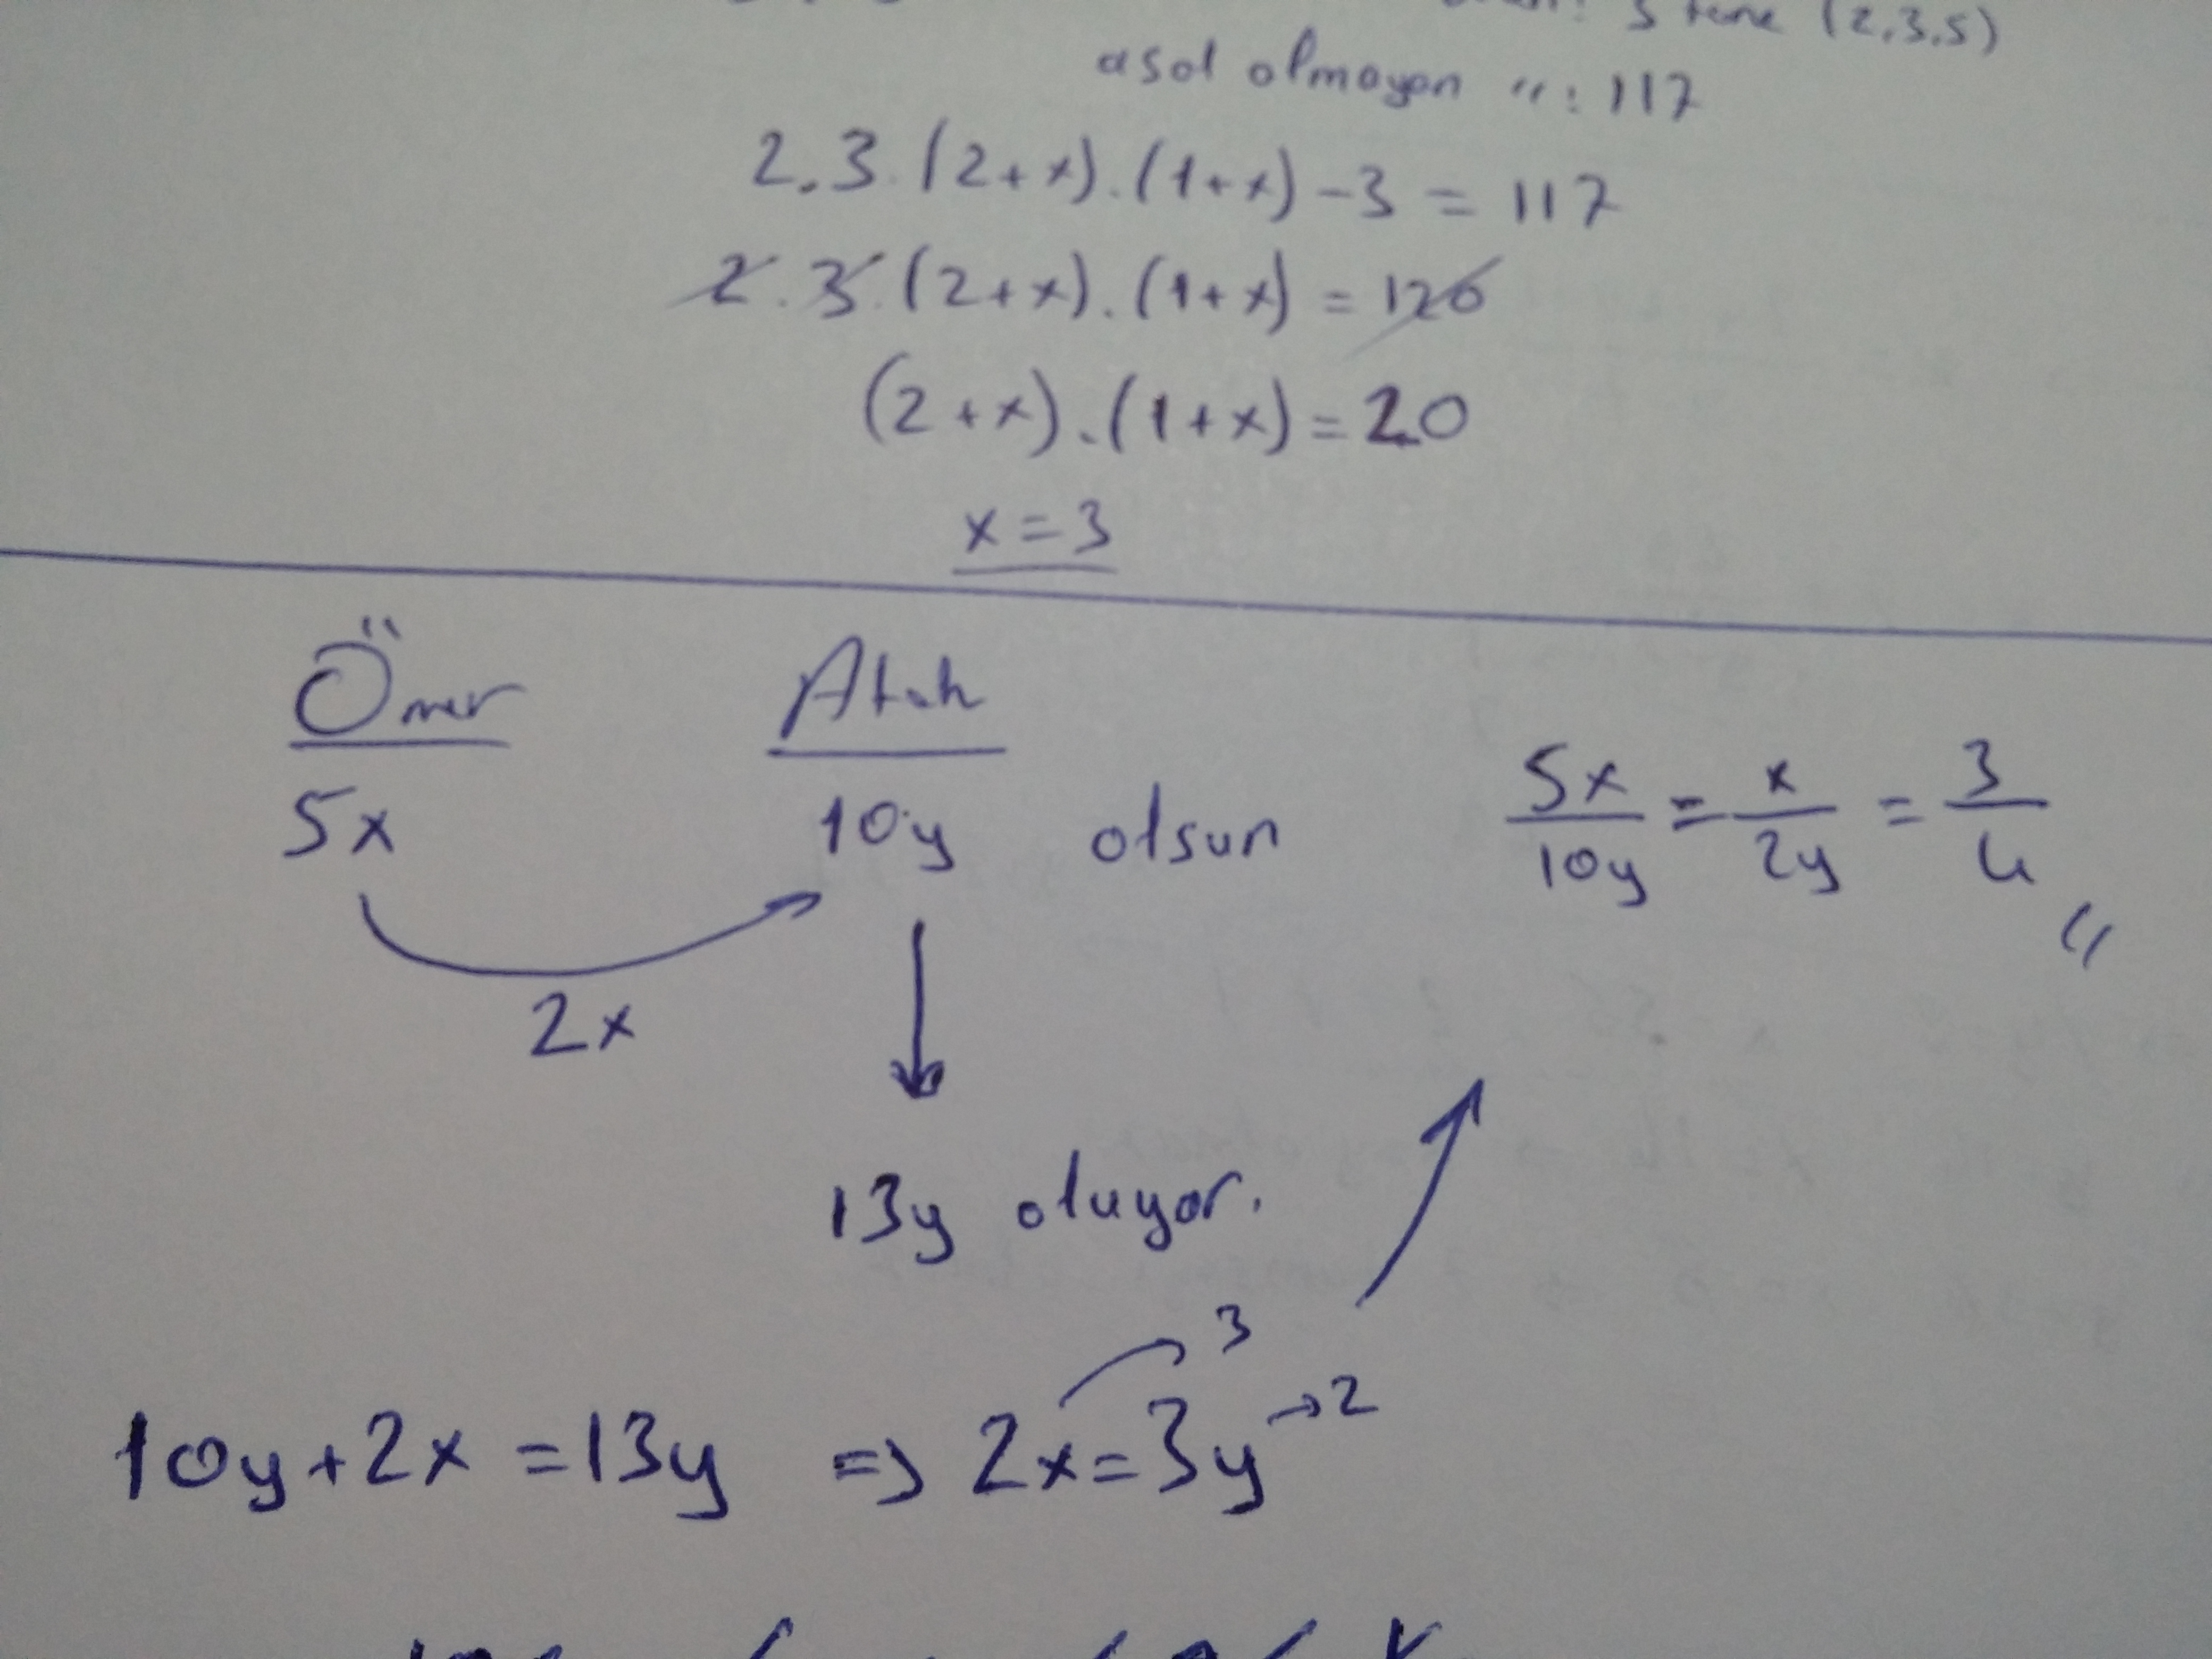 3 tane (2,3,5)
asal olmayan ": 117
2.3.(2+x).(1+x)-3 = 117
2.3.(2+x).(1+x) = 120
(2+x).(1+x) = 20
x = 3
Ömer Atak
5x 10y olsun 5x/10y = x/2y = 3/4 "
2x
13y oluyor.
3
10y+2x = 13y => 2x = 3y → 2